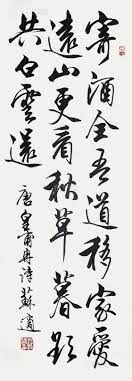 寄酒全吾道移家愛
遠山更看秋草暮欲
共白雲還
唐皇甫冉詩蘇